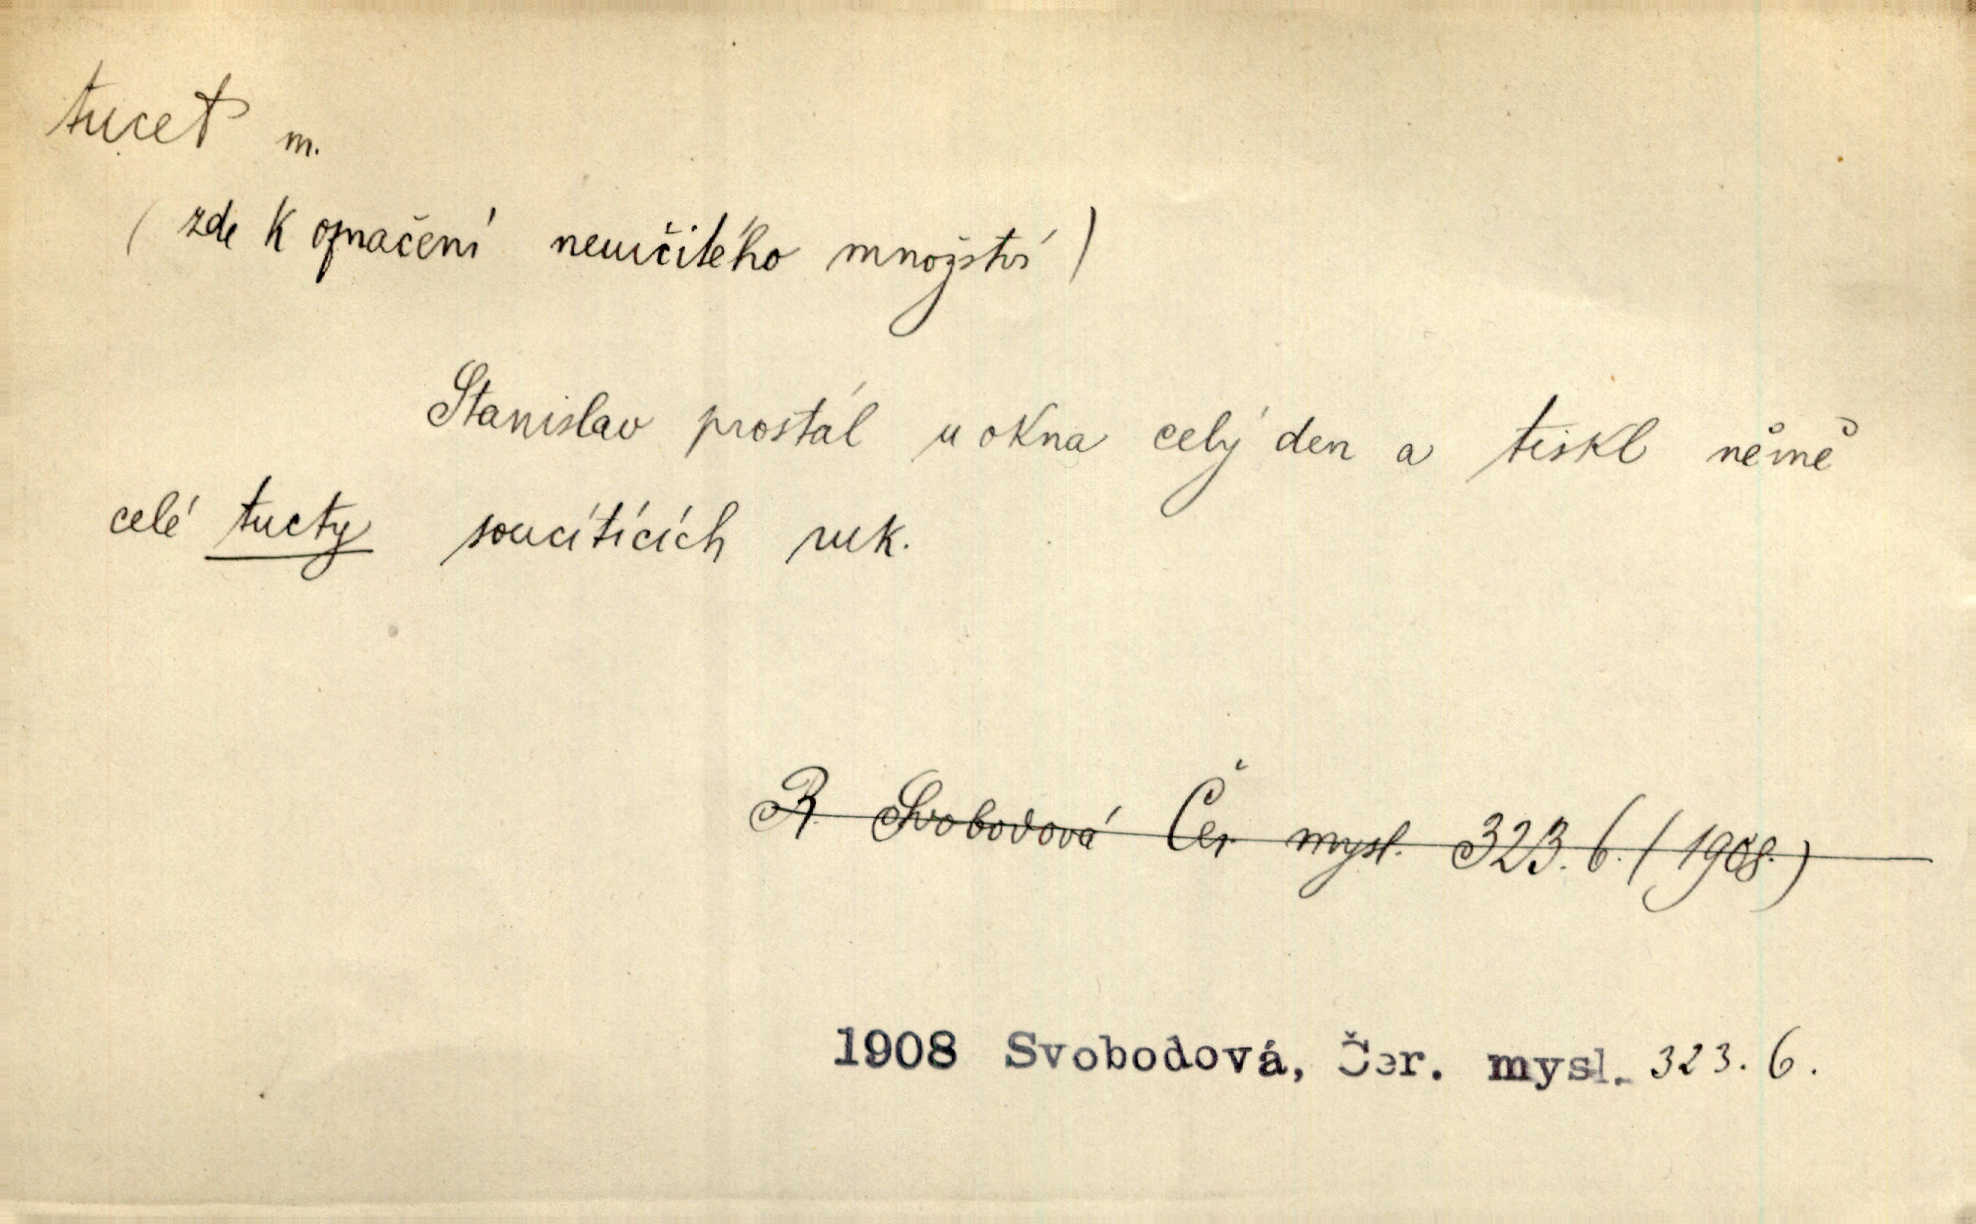 tucet m.
(zde k označení neurčitého množství)
Stanislav prostál u okna celý den a tiskl němě
celé tucty soucítících ruk.
R. Svobodová Čer. mysl. 323.6. (1908.)
1908 Svobodová, Čer. mysl. 323.6.